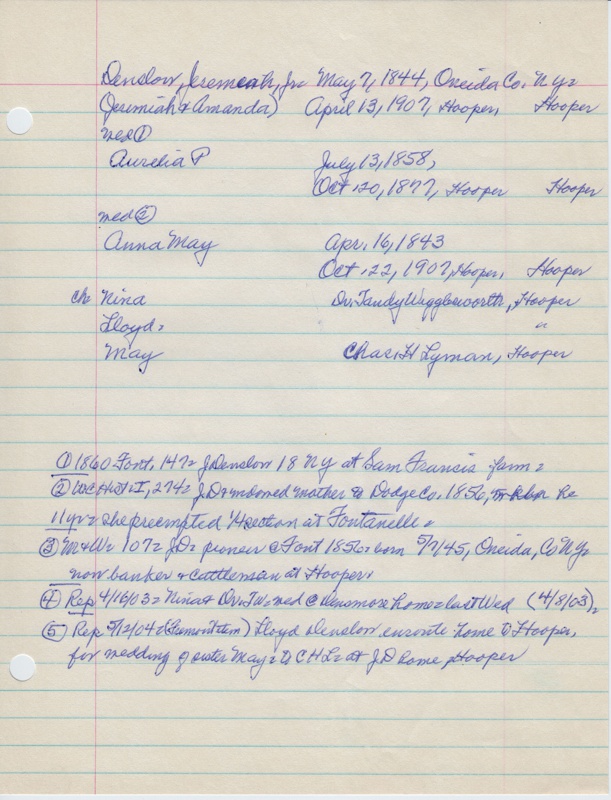 Denslow, Jeremeah, Jr= May 7, 1844, Oneida Co. Ny=
(Jeremiah & Amanda) April 13, 1907, Hooper, Hooper
med ①
Aurelia P July 13, 1858,
Oct. 20, 1877, Hooper Hooper
med ②
Anna May Apr. 16, 1843
Oct. 22, 1907, Hooper, Hooper
ch= Nina Dr. Tandy Wigglesworth, Hooper
Lloyd= "
May Chas. H Lyman, Hooper
① 1860 Font. 147= J Denslow 18 NY at Sam Francis farm=
② 274= J.D & widowed mother to Dodge Co. 1856, Re
11 yr= she preempted ¼ section at Fontanelle=
③ M&W= 107= JD= pioneer @ Font 1856= born 5/7/45, Oneida, Co NY=
now banker & cattleman at Hooper=
④ Rep 4/16/03= Nina & Dr. TW= med @ Densmore home= last Wed (4/8/03)=
⑤ Rep 5/12/04= Lloyd Denslow enroute home to Hooper,
for wedding of sister May= to CHL= at JD home, Hooper